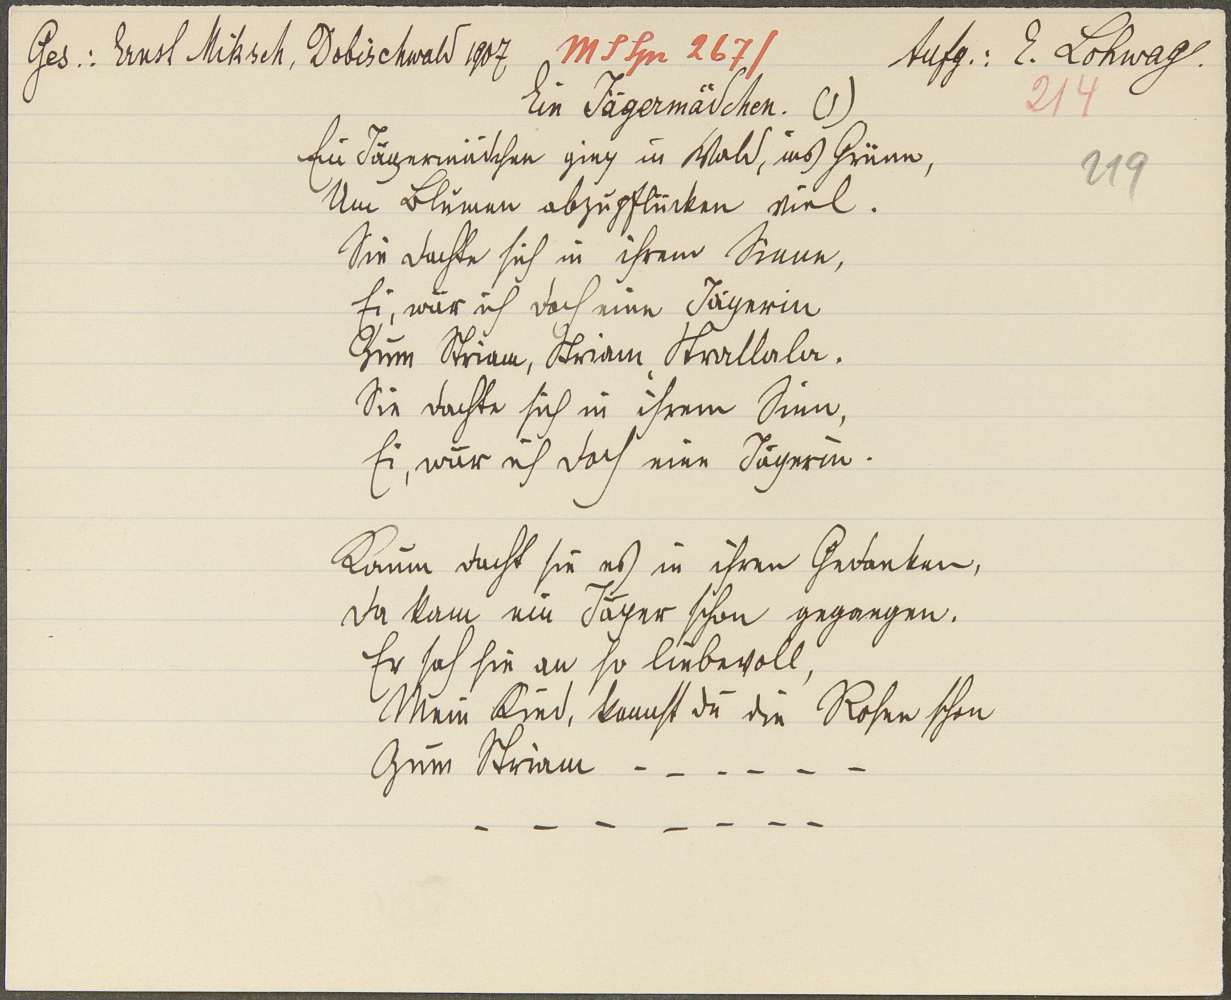 Ges.: Ernst Miksch, Dobischwald 1907 Aufg.: E. Lohwag.
214
Ein Jägermädchen. (1)
219
Ein Jägermädchen ging in Wald, ins Grüne,
Um Blumen abzupflücken viel.
Sie dachte sich in ihrem Sinne,
Ei, wär ich doch eine Jägerin
Zum Striam, Striam, Strallala.
Sie dachte sich in ihrem Sinn,
Ei, wär ich doch eine Jägerin.
Kaum dacht sie es in ihren Gedanken,
Da kam ein Jäger schon gegangen.
Er sah sie an so liebevoll,
Mein Kind, kannst du die Rosen schon
Zum Striam - - - - - -
- - - - - - -